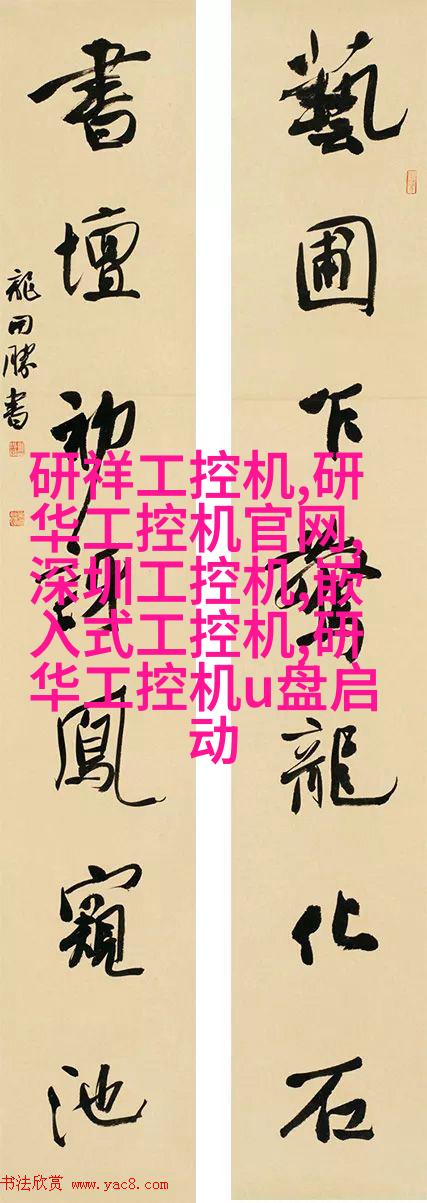 藝圃乍驚龍化石
書壇初訝鳳窺池
龍開勝書
研祥工控机,研
华工控机官网,
深圳工控机,嵌
入式工控机,研
华工控机u盘启
动
书法欣赏 www.yac8.com